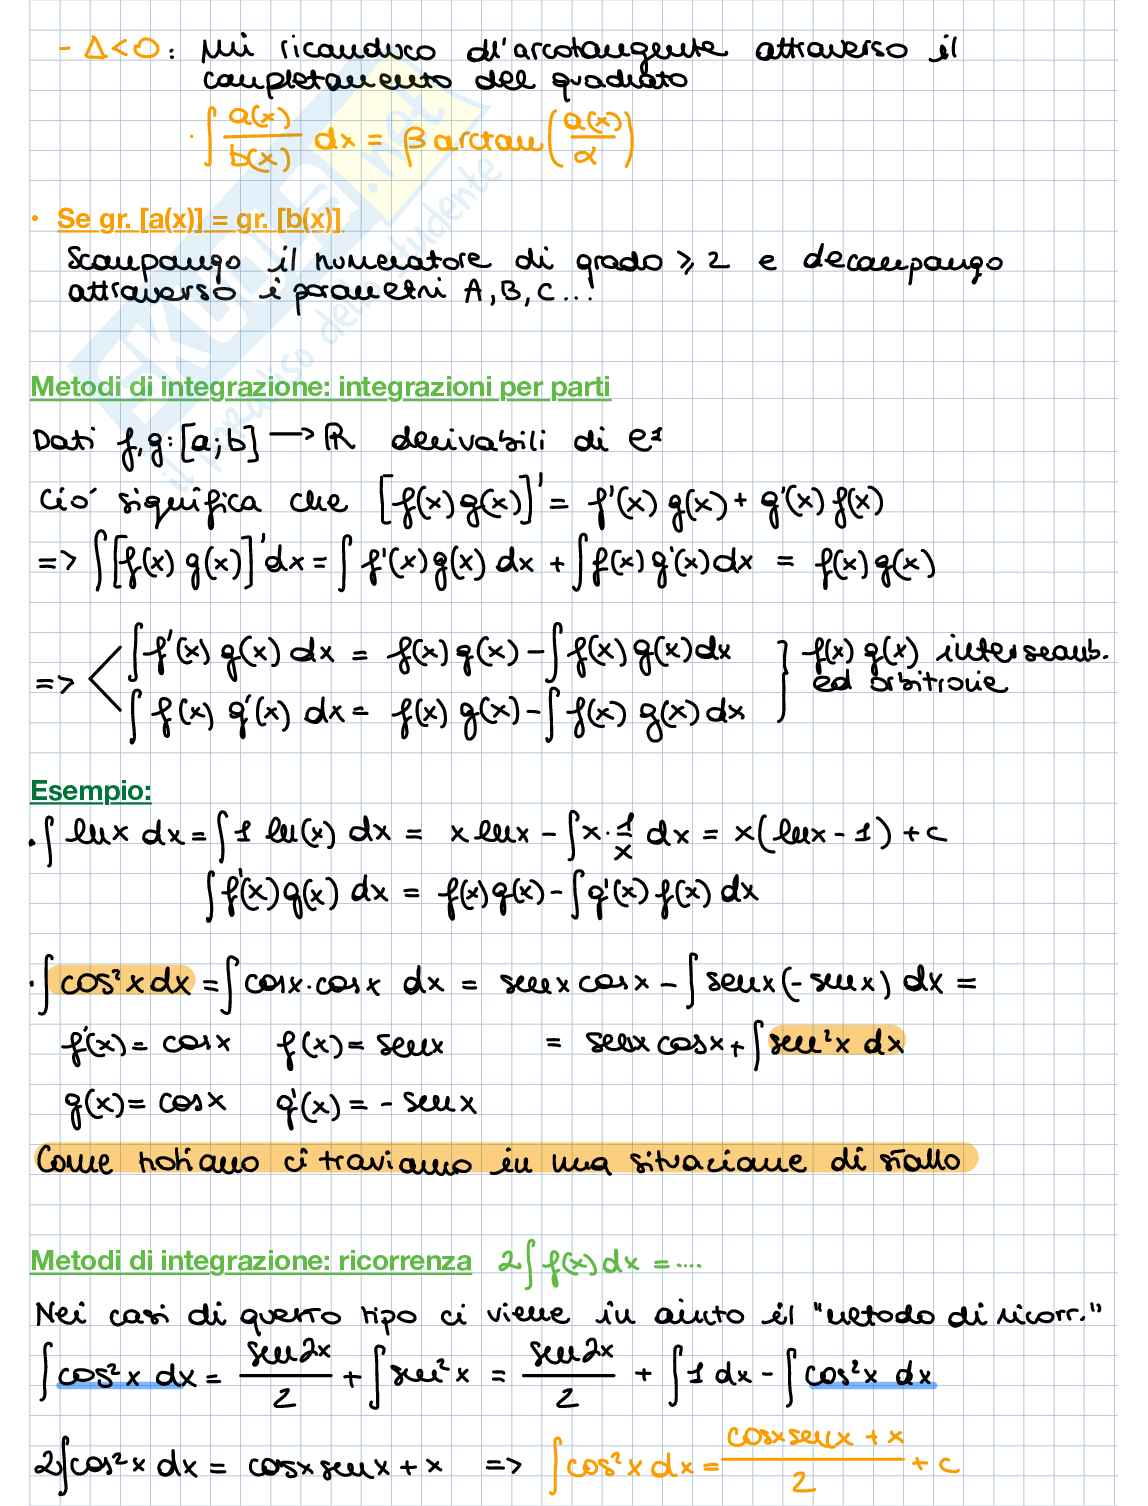 - Δ<0: Mi riconduco all'arcotangente attraverso il
completamento del quadrato
· ∫ a(x)/b(x) dx = β arctan(a(x)/α)
• Se gr. [a(x)] = gr. [b(x)]
Scompongo il numeratore di grado ⩾ 2 e decompongo
attraverso i parametri A, B, C ...
Metodi di integrazione: integrazioni per parti
Dati f,g: [a;b] → ℝ derivabili di e¹
Ció significa che [f(x)g(x)]' = f'(x) g(x) + g'(x) f(x)
=> ∫[f(x) g(x)]'dx = ∫ f'(x)g(x) dx + ∫f(x) g'(x)dx = f(x)g(x)
=> < ∫f'(x) g(x) dx = f(x)g(x) - ∫f(x) g(x)dx } f(x) g(x) interscamb.
∫ f(x) g'(x) dx = f(x) g(x) - ∫f(x) g(x) dx ed arbitrarie
Esempio:
• ∫ lnx dx = ∫ 1 ln(x) dx = x lnx - ∫x · 1/x dx = x(lnx - 1) + c
∫f'(x)g(x) dx = f(x)g(x) - ∫g'(x) f(x) dx
· ∫cos²x dx = ∫cosx·cosx dx = senx cosx - ∫senx(-senx) dx =
f'(x) = cosx f(x) = senx = senx cosx + ∫sen²x dx
g(x) = cosx g'(x) = - senx
Come notiamo ci troviamo in una situazione di stallo
Metodi di integrazione: ricorrenza 2∫f(x)dx = ....
Nei casi di questo tipo ci viene in aiuto il "metodo di ricorr."
∫cos²x dx = sen2x/2 + ∫sen²x = sen2x/2 + ∫1 dx - ∫cos²x dx
2∫cos²x dx = cosxsenx + x => ∫cos²x dx = cosxsenx + x/2 + c